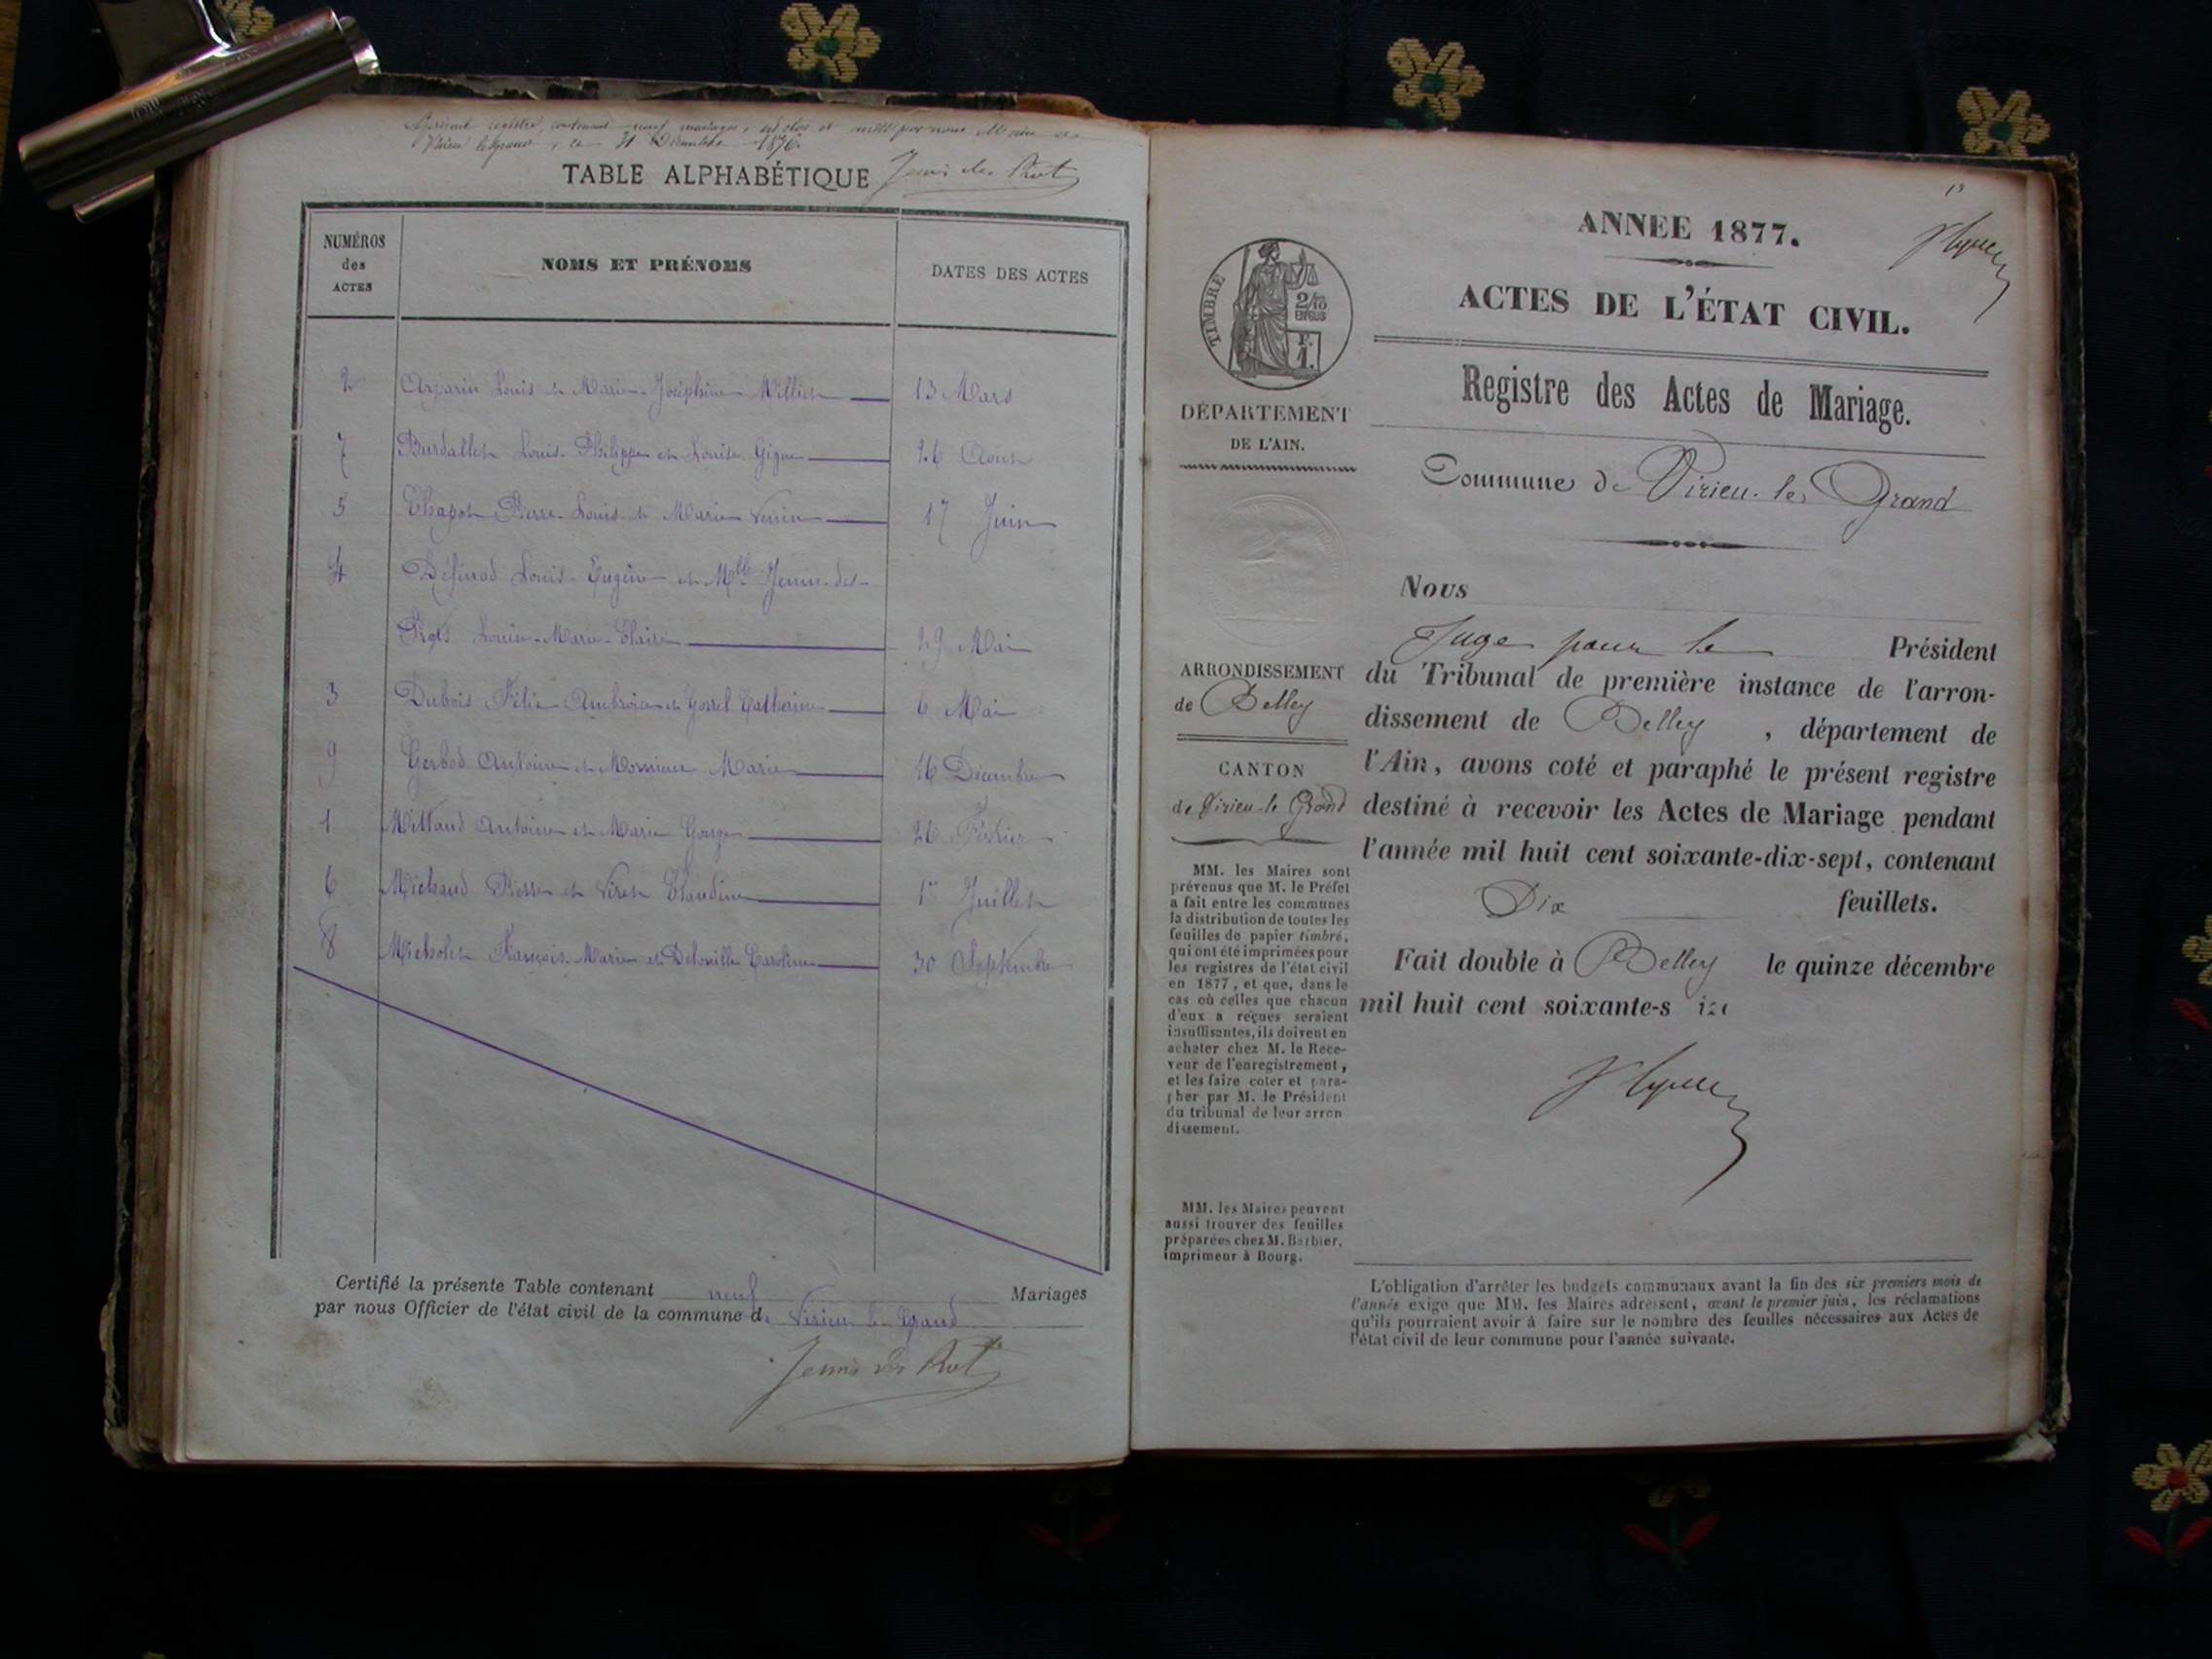 présent registre, contenant neuf mariages, est clos et arrêté par nous Maire de
Virieu le grand, ce 31 Décembre 1876.
TABLE ALPHABÉTIQUE
NUMÉROS
des
ACTES
NOMS ET PRÉNOMS
DATES DES ACTES
2 Arparin Louis et Marie-Joséphine Milliet 13 Mars
7 Burdallet Louis-Philippe et Louise Gigue 26 Aout
5 Chapot Pierre-Louis et Marie 17 Juin
4 Louis-Eugène et Mlle Jenin-des-
Louise-Marie-Claire 29 Mai
3 Dubois Félix Ambroise et Gorrel Catherine 6 Mai
9 Gerbod Antoine et Marie 16 Décembre
1 Mittaud Antoine et Marie 26 Février
6 Michaud Pierre et Viret Claudine 1er Juillet
8 Micholet François-Marie et Caroline 30 Septembre
Certifié la présente Table contenant neuf Mariages
par nous Officier de l'état civil de la commune de Virieu le Grand
ANNEE 1877.
ACTES DE L'ÉTAT CIVIL.
TIMBRE
2/10
EN SUS
F.
1.
Registre des Actes de Mariage.
DÉPARTEMENT
DE L'AIN.
Commune de Virieu-le-Grand
Nous
Juge pour le Président
du Tribunal de première instance de l'arron-
dissement de Belley, département de
l'Ain, avons coté et paraphé le présent registre
destiné à recevoir les Actes de Mariage pendant
l'année mil huit cent soixante-dix-sept, contenant
Dix feuillets.
Fait double à Belley le quinze décembre
mil huit cent soixante-s ize
ARRONDISSEMENT
de Belley
CANTON
de Virieu-le Grand
MM. les Maires sont
prévenus que M. le Préfet
a fait entre les communes
la distribution de toutes les
feuilles de papier timbré,
qui ont été imprimées pour
les registres de l'état civil
en 1877, et que, dans le
cas où celles que chacun
d'eux a reçues seraient
insuffisantes, ils doivent en
acheter chez M. le Rece-
veur de l'enregistrement,
et les faire coter et para-
pher par M. le Président
du tribunal de leur arron
dissement.
MM. les Maires peuvent
aussi trouver des feuilles
préparées chez M. Barbier,
imprimeur à Bourg.
L'obligation d'arrêter les budgets communaux avant la fin des six premiers mois de
l'année exige que MM. les Maires adressent, avant le premier juin, les réclamations
qu'ils pourraient avoir à faire sur le nombre des feuilles nécessaires aux Actes de
l'état civil de leur commune pour l'année suivante.